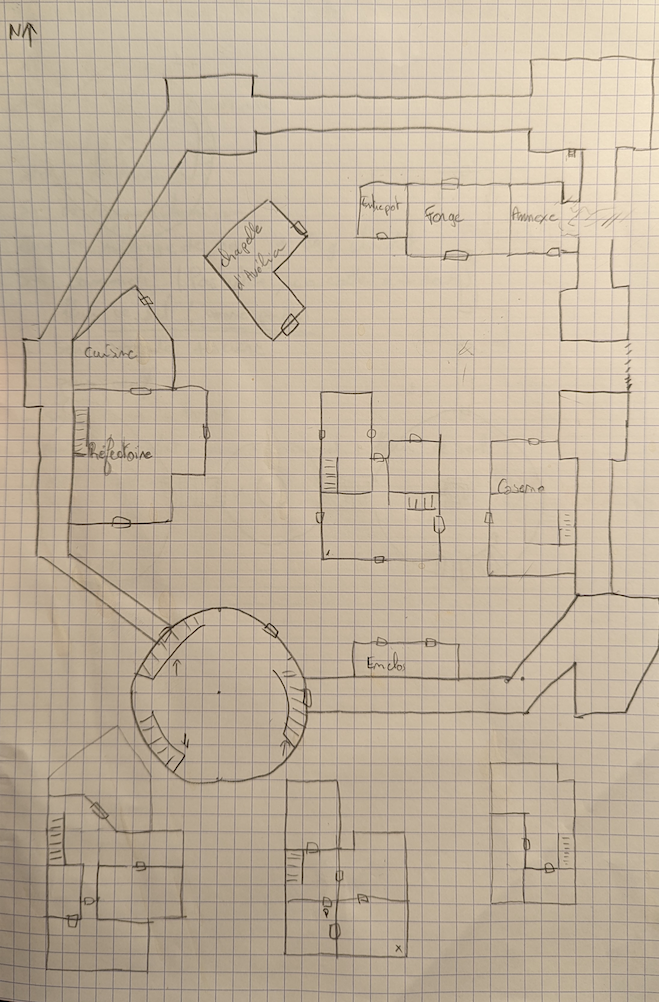 N
Entrepot
Forge
Annexe
Chapelle
d'Avélia
Cuisine
Réfectoire
Caserne
Enclos
x